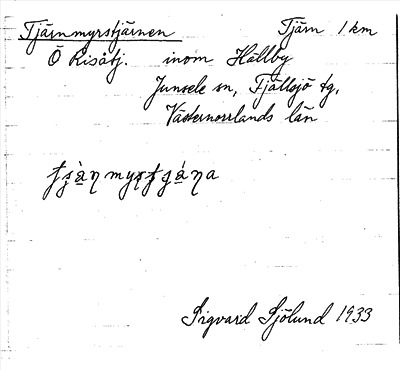 Tjärnmyrstjärnen Tjärn 1 km
Ö Risåtj. inom Hällby
Junsele sn, Fjällsjö tg,
Västernorrlands län
Sigvard Sjölund 1933